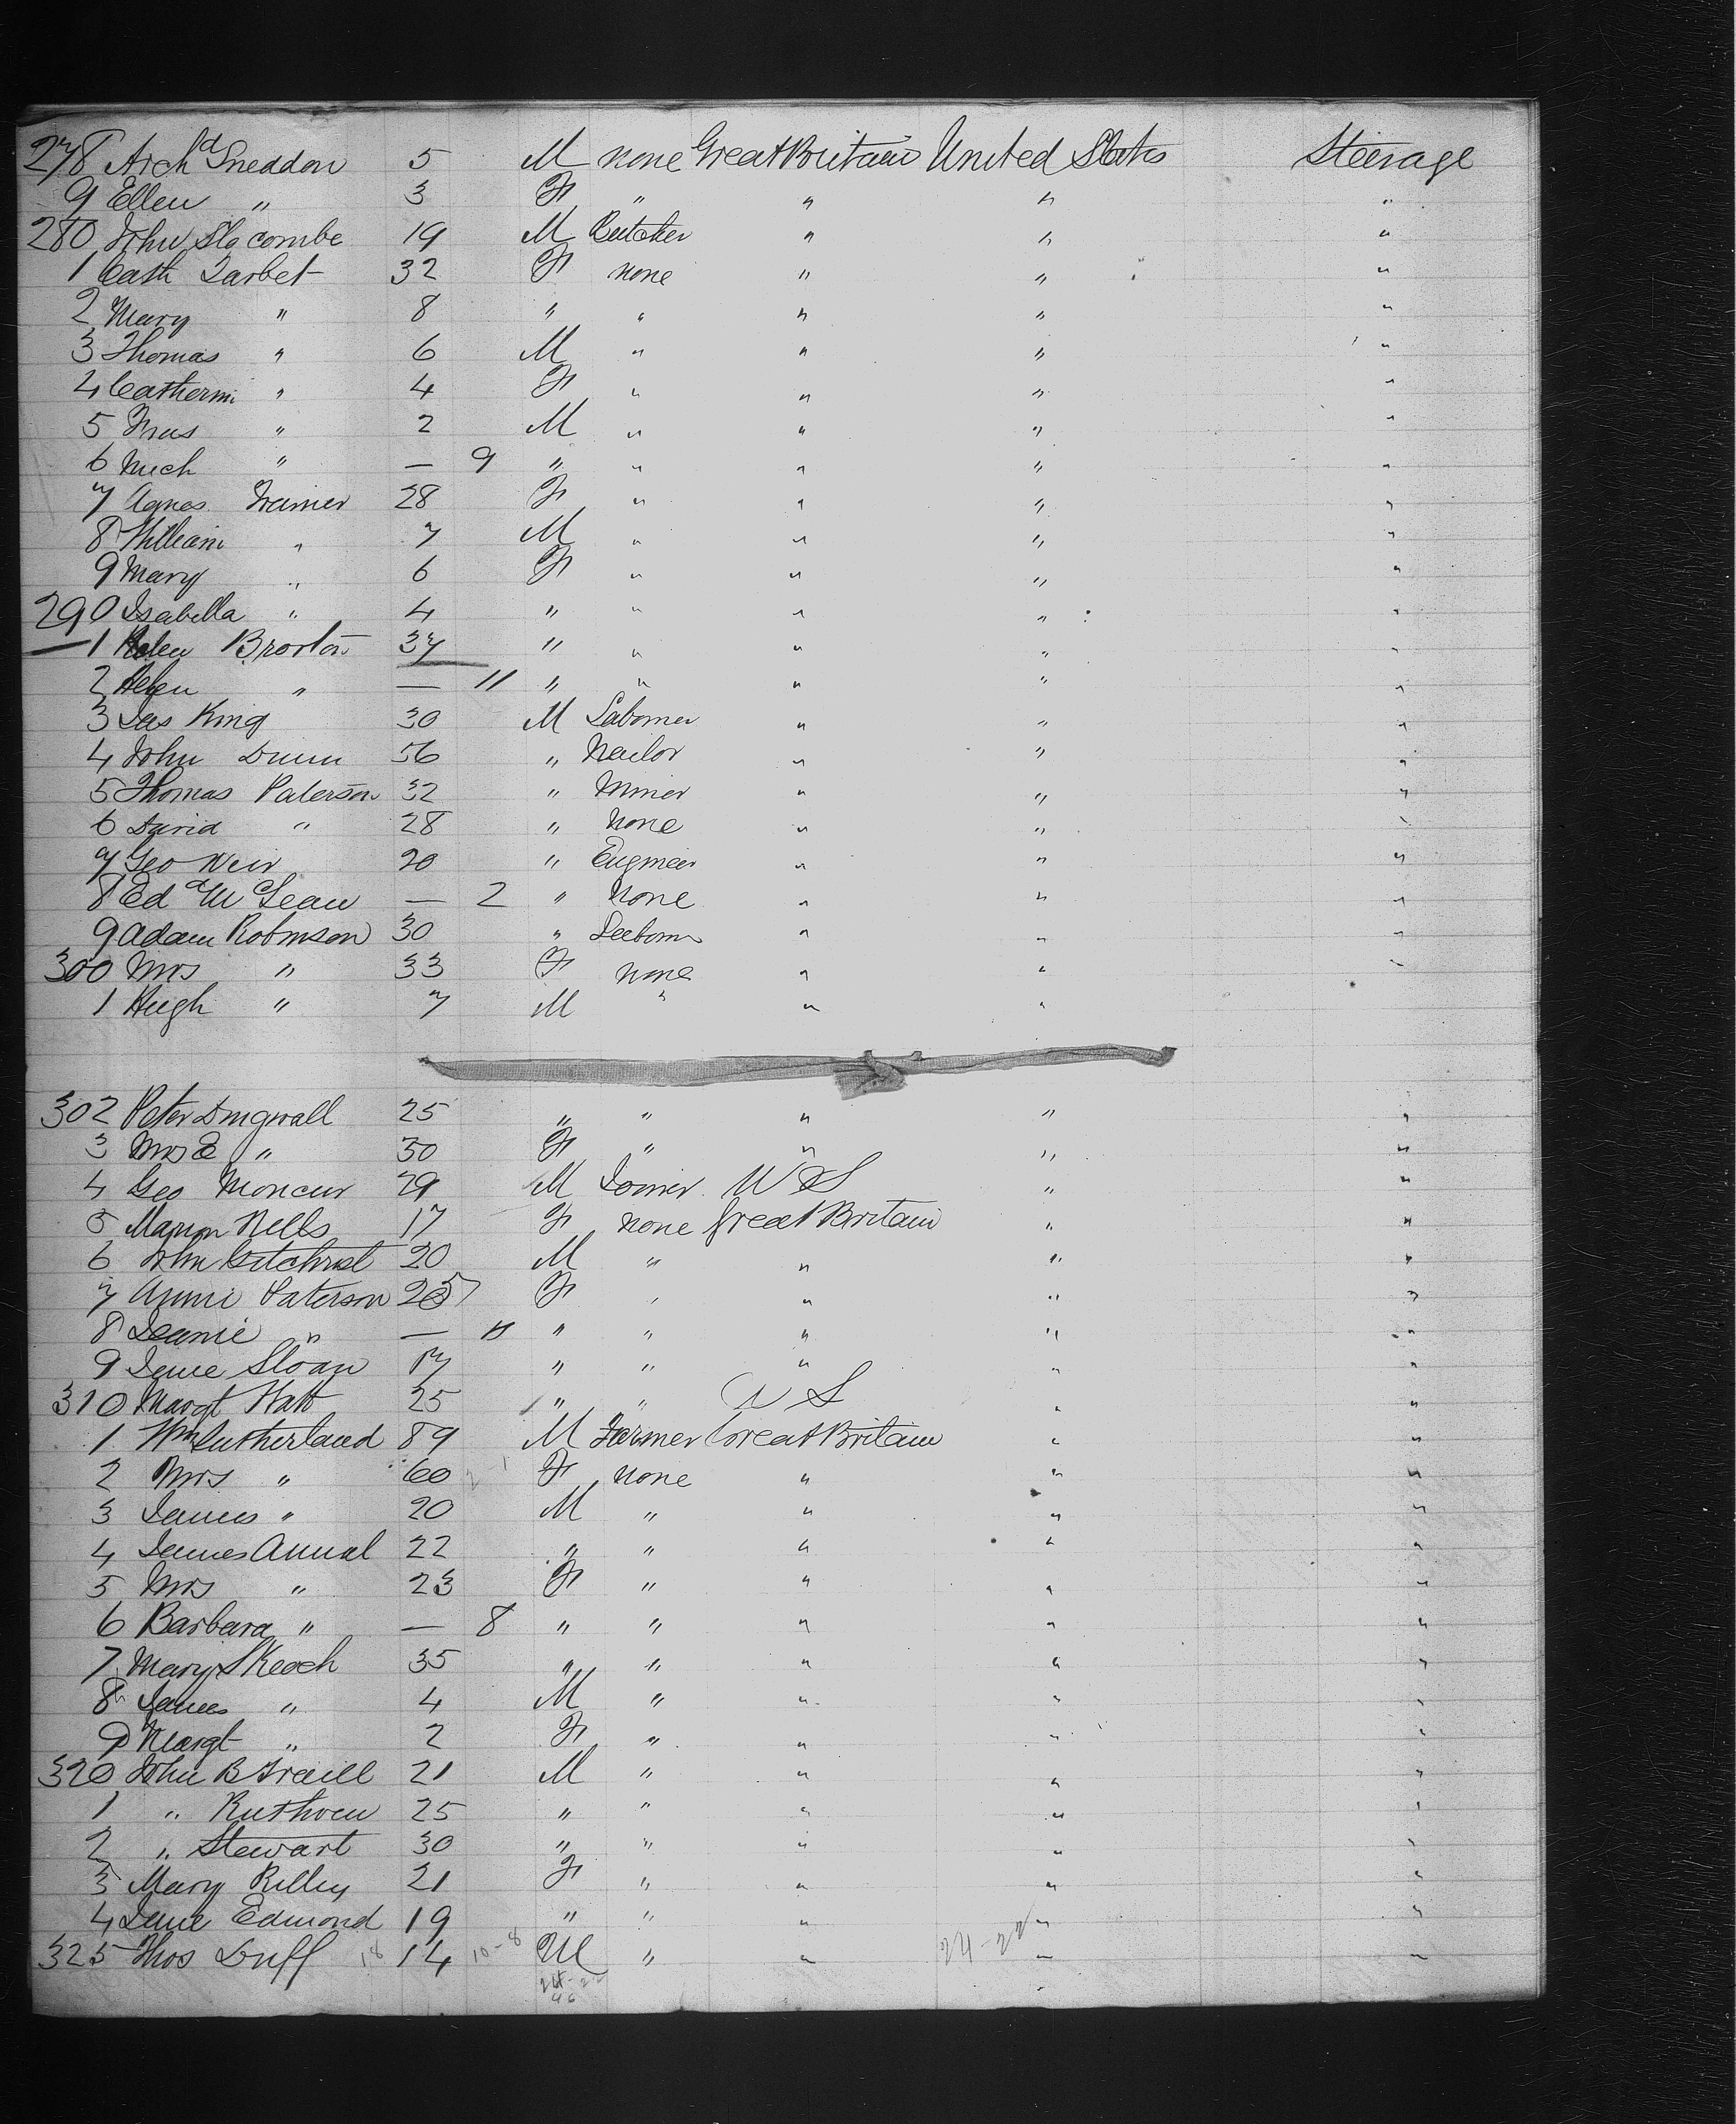 278 Archd Sneddon 5 M none Great Britain United States Steerage
9 Ellen " 3 F " " " "
280 John Slocombe 19 M Butcher " " "
1 Cath Tarbet 32 F none " " "
2 Mary " 8 " " " " "
3 Thomas " 6 M " " " "
4 Catherin " 4 F " " " "
5 " 2 M " " " "
6 Mich " — 9 " " " " "
7 Agnes Frainer 28 F " " " "
8 William " 7 M " " " "
9 Mary " 6 F " " " "
290 Isabella " 4 " " " " "
— 1 Helen Broxton 37 " " " " "
2 Helen " — 11 " " " " "
3 Jas King 30 M Labourer " " "
4 John Dunn 56 " Nailor " " "
5 Thomas Paterson 32 " Miner " " "
6 David " 28 " none " " "
7 Geo Weir 20 " Engineer " " "
8 Edd McLean — 2 " none " " "
9 Adam Robinson 30 " " " "
300 Mrs " 33 F none " " "
1 Hugh " 7 M " " " "
302 Peter Dingwall 25 " " " " "
3 Mrs E " 30 F " " " "
4 Geo Moncur 29 M Joiner U S " "
5 Marion Wells 17 F none Great Britain " "
6 John Gilchrist 20 M " " " "
7 Annie Paterson 25 F " " " "
8 Jeanie " — " " " " "
9 Jane Sloan 17 " " " " "
310 Margt Watt 25 " " U S " "
1 Wm Sutherland 89 M Farmer Great Britain " "
2 Mrs " 60 F none " " "
3 James " 20 M " " " "
4 James Annal 22 " " " " "
5 Mrs " 23 F " " " "
6 Barbara " — 8 " " " " "
7 Mary Skeoch 35 " " " " "
8 James " 4 M " " " "
9 Margt " 2 F " " " "
320 John B Traill 21 M " " " "
1 " Ruthven 25 " " " " "
2 " Stewart 30 " " " " "
3 Mary Rilley 21 F " " " "
4 Jane Edmond 19 " " " " "
325 Thos Duff 18 14 10-8 M " " 24-22 " "
24-22
46